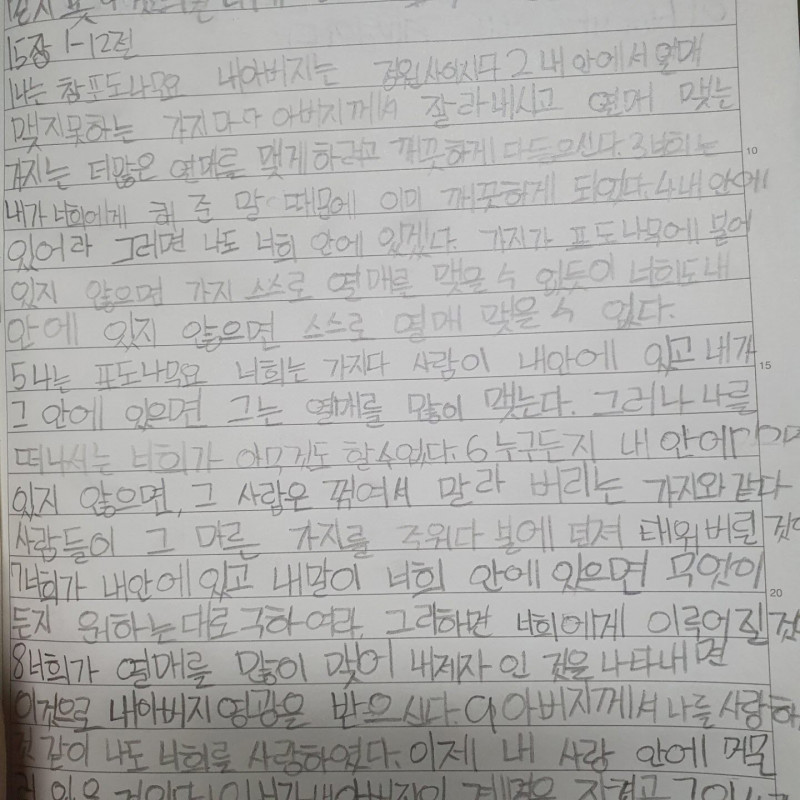 15장 1-12절
1나는 참포도나무요 내아버지는 정원사이시다 2 내 안에서 열매
맺지못하는 가지마다 아버지께서 잘라내시고 열매 맺는
가지는 더많은 열매를 맺게하려고 깨끗하게 다듬으신다. 3 너희는
내가 너희에게 해 준 말 때문에 이미 깨끗하게 되었다. 4 내 안에
있어라 그러면 나도 너희 안에 있겠다. 가지가 포도나무에 붙어
있지 않으면 가지 스스로 열매를 맺을 수 없듯이 너희도 내
안에 있지 않으면 스스로 열매 맺을 수 없다.
5 나는 포도나무요 너희는 가지다 사람이 내안에 있고 내가
그 안에 있으면 그는 열매를 많이 맺는다. 그러나 나를
떠나서는 너희가 아무것도 할수없다. 6 누구든지 내 안에
있지 않으면, 그 사람은 꺾여서 말라 버리는 가지와 같다
사람들이 그 마른 가지를 주워다 불에 던져 태워버릴
7너희가 내안에 있고 내말이 너희 안에 있으면 무엇이
든지 원하는대로 구하여라. 그리하면 너희에게 이루어질
8너희가 열매를 많이 맺어 내제자 인 것을 나타내면
이것으로 내아버지 영광을 받으신다. 9 아버지께서 나를 사랑하
것 같이 나도 너희를 사랑하였다. 이제 내 사랑 안에 머물